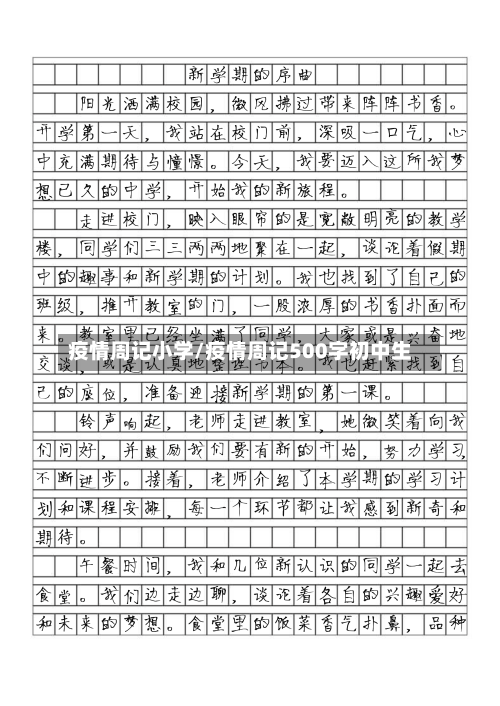 新学期的序曲
阳光洒满校园，微风拂过带来阵阵书香。
开学第一天，我站在校门前，深吸一口气，心
中充满期待与憧憬。今天，我要迈入这所我梦
想已久的中学，开始我的新旅程。
走进校门，映入眼帘的是宽敞明亮的教学
楼，同学们三三两两地聚在一起，谈论着假期
中的趣事和新学期的计划。我也找到了自己的
班级，推开教室的门，一股浓厚的书香扑面而
来。教室里已经坐满了同学，大家或是兴奋地
疫情周记小学/疫情周记500字初中生
交谈，或是认真地整理书本。我也赶紧找到自
己的座位，准备迎接新学期的第一课。
铃声响起，老师走进教室，她微笑着向我
们问好，并鼓励我们要有新的开始，努力学习，
不断进步。接着，老师介绍了本学期的学习计
划和课程安排，每一个环节都让我感到新奇和
期待。
午餐时间，我和几位新认识的同学一起去
食堂。我们边走边聊，谈论着各自的兴趣爱好
和未来的梦想。食堂里的饭菜香气扑鼻，品种